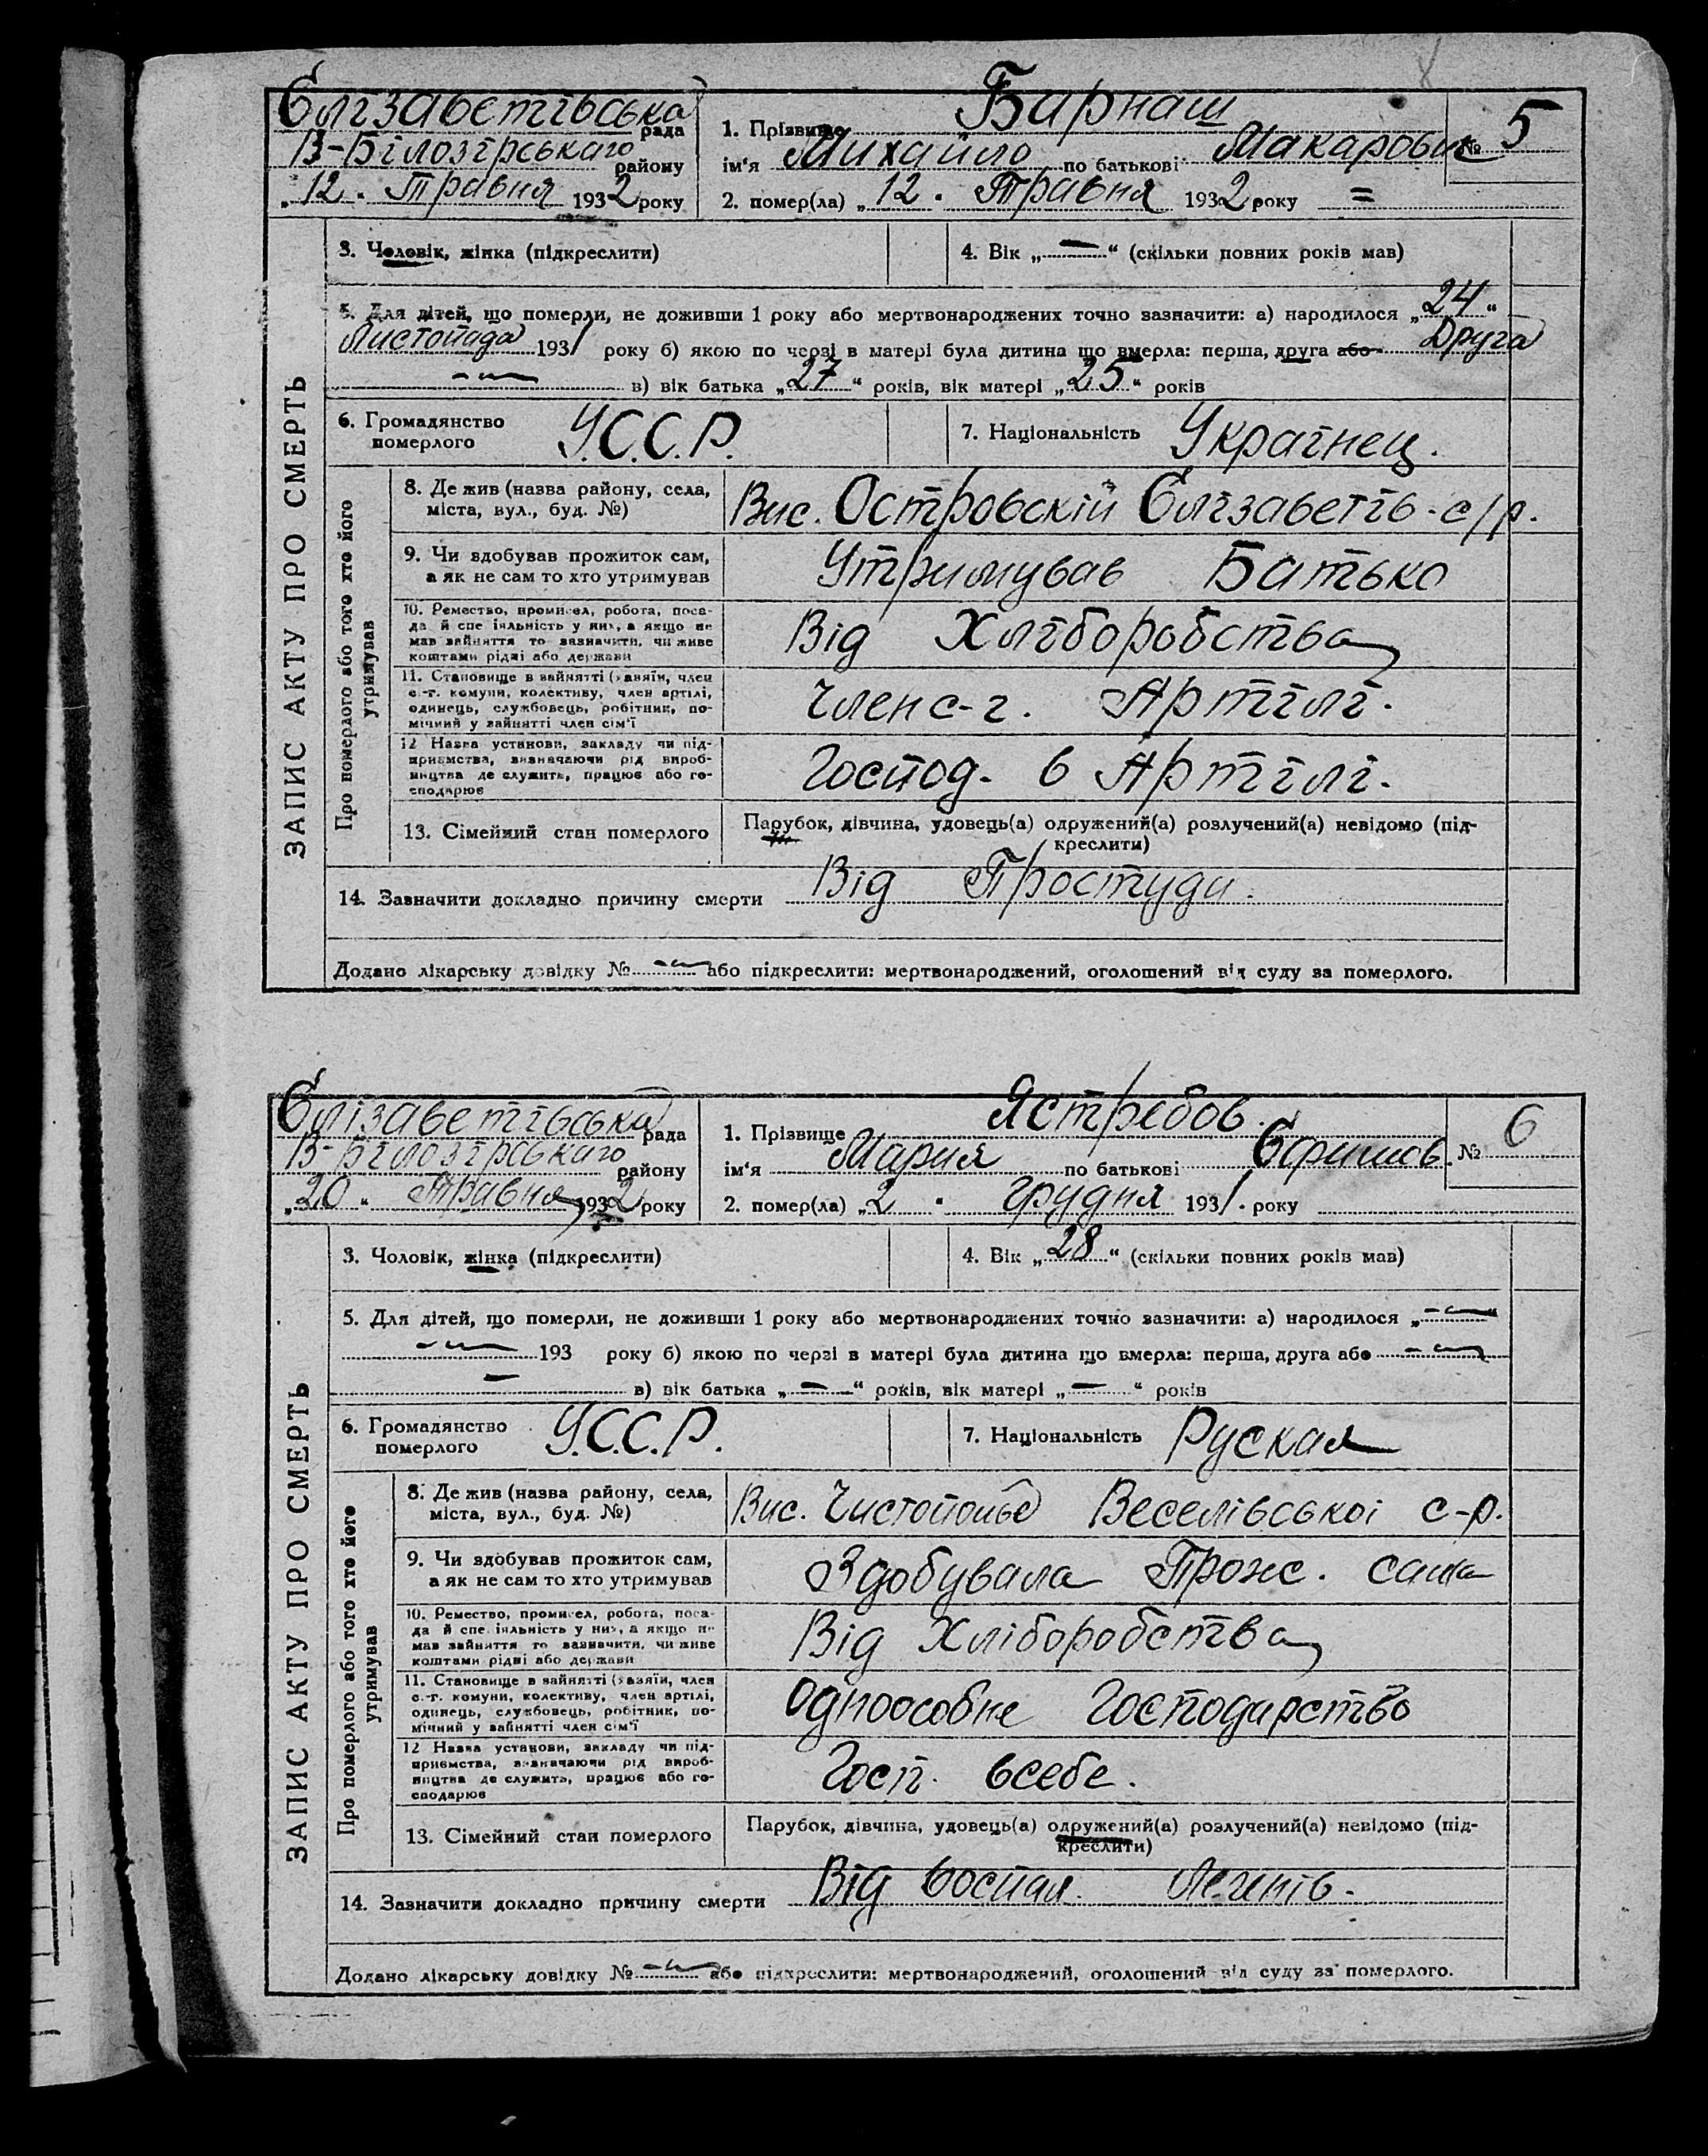 Єлізаветівська рада
В-Білозірського району
„12. Травня 1932 року
1. Прізвище Барнаш
ім'я Михайло по батькові Макарович № 5
2. помер(ла) „12. Травня 1932 року =
ЗАПИС АКТУ ПРО СМЕРТЬ
3. Чоловік, жінка (підкреслити)
4. Вік „—“ (скільки повних років мав)
5. Для дітей, що померли, не доживши 1 року або мертвонароджених точно зазначити: а) народилося „24“
Листопада 1931 року б) якою по черзі в матері була дитина що вмерла: перша, друга або Друга
в) вік батька „27“ років, вік матері „25“ років
6. Громадянство
померлого
У.С.С.Р.
7. Національність Украінец.
Про померлого або того хто його
утримував
8. Де жив (назва району, села,
міста, вул., буд. №)
Вис. Островскій Єлізаветів-с/р.
9. Чи здобував прожиток сам,
а як не сам то хто утримував
Утримував Батько
10. Ремество, промисел, робота, поса-
да й спеціяльність у них, а якщо не
мав зайняття то зазначити, чи живе
коштами рідні або держави
Від Хліборобства
11. Становище в зайнятті (хазяїн, член
с.-г. комуни, колективу, член артілі,
одинець, службовець, робітник, по-
мічний у зайнятті член сім'ї
Член с-г. Артілі.
12 Назва установи, закладу чи під-
приємства, визначаючи рід вироб-
ництва де служить, працює або го-
сподарює
Господ. в Артілі.
13. Сімейний стан померлого
Парубок, дівчина, удовець(а) одружений(а) розлучений(а) невідомо (під-
креслити)
14. Зазначити докладно причину смерти Від Простуди.
Додано лікарську довідку № або підкреслити: мертвонароджений, оголошений від суду за померлого.
Єлізаветівська рада
В-Білозірського району
„20“ Травня 1932 року
1. Прізвище Ястребов.
ім'я Мария по батькові Єфимов. № 6
2. помер(ла) „2“ Грудня 1931. року
ЗАПИС АКТУ ПРО СМЕРТЬ
3. Чоловік, жінка (підкреслити)
4. Вік „28“ (скільки повних років мав)
5. Для дітей, що померли, не доживши 1 року або мертвонароджених точно зазначити: а) народилося „—“
193 року б) якою по черзі в матері була дитина що вмерла: перша, друга або
— в) вік батька „—“ років, вік матері „—“ років
6. Громадянство
померлого
У.С.С.Р.
7. Національність Руская
Про померлого або того хто його
утримував
8. Де жив (назва району, села,
міста, вул., буд. №)
Вис. Веселівської с-р.
9. Чи здобував прожиток сам,
а як не сам то хто утримував
Здобувала Прож. сама
10. Ремество, промисел, робота, поса-
да й спеціяльність у них, а якщо не
мав зайняття то зазначити, чи живе
коштами рідні або держави
Від Хліборобства
11. Становище в зайнятті (хазяїн, член
с.-г. комуни, колективу, член артілі,
одинець, службовець, робітник, по-
мічний у зайнятті член сім'ї
Одноособне Господарство
12 Назва установи, закладу чи під-
приємства, визначаючи рід вироб-
ництва де служить, працює або го-
сподарює
Госп. всебе.
13. Сімейний стан померлого
Парубок, дівчина, удовець(а) одружений(а) розлучений(а) невідомо (під-
креслити)
14. Зазначити докладно причину смерти Від воспал. Легенів.
Додано лікарську довідку № або підкреслити: мертвонароджений, оголошений від суду за померлого.